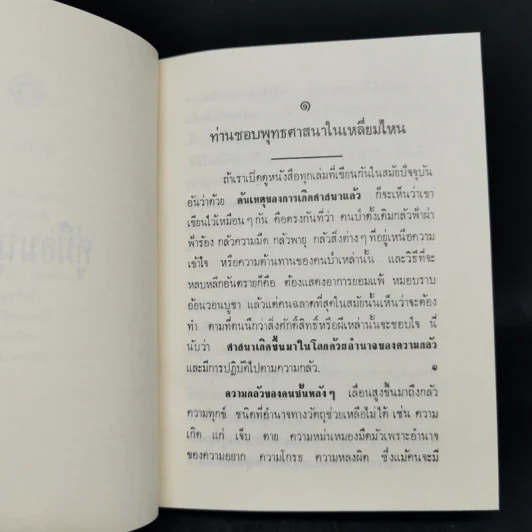 ๑
ท่านชอบพุทธศาสนาในเหลี่ยมไหน
ถ้าเราเปิดดูหนังสือทุกเล่มที่เขียนกันในสมัยปัจจุบัน
อันว่าด้วย ต้นเหตุของการเกิดศาสนาแล้ว ก็จะเห็นว่าเขา
เขียนไว้เหมือน ๆ กัน คือตรงกันที่ว่า คนป่าดั้งเดิมกลัวฟ้าผ่า
ฟ้าร้อง กลัวความมืด กลัวพายุ กลัวสิ่งต่าง ๆ ที่อยู่เหนือความ
เข้าใจ หรือความต้านทานของคนป่าเหล่านั้น และวิธีที่จะ
หลบหลีกอันตรายก็คือ ต้องแสดงอาการยอมแพ้ หมอบราบ
อ้อนวอนบูชา แล้วแต่คนฉลาดที่สุดในสมัยนั้นเห็นว่าจะต้อง
ทำ ตามที่ตนนึกว่าสิ่งศักดิ์สิทธิ์หรือผีเหล่านั้นจะชอบใจ นี่
นับว่า ศาสนาเกิดขึ้นมาในโลกด้วยอำนาจของความกลัว
และมีการปฏิบัติไปตามความกลัว. ๑
ความกลัวของคนชั้นหลัง ๆ เลื่อนสูงขึ้นมาถึงกลัว
ความทุกข์ ชนิดที่อำนาจทางวัตถุช่วยเหลือไม่ได้ เช่น ความ
เกิด แก่ เจ็บ ตาย ความหม่นหมองมืดมัวเพราะอำนาจ
ของความอยาก ความโกรธ ความหลงผิด ซึ่งแม้คนจะมี